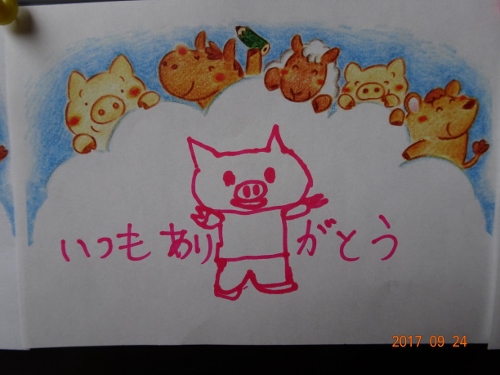 いつもありがとう
2017 09 24